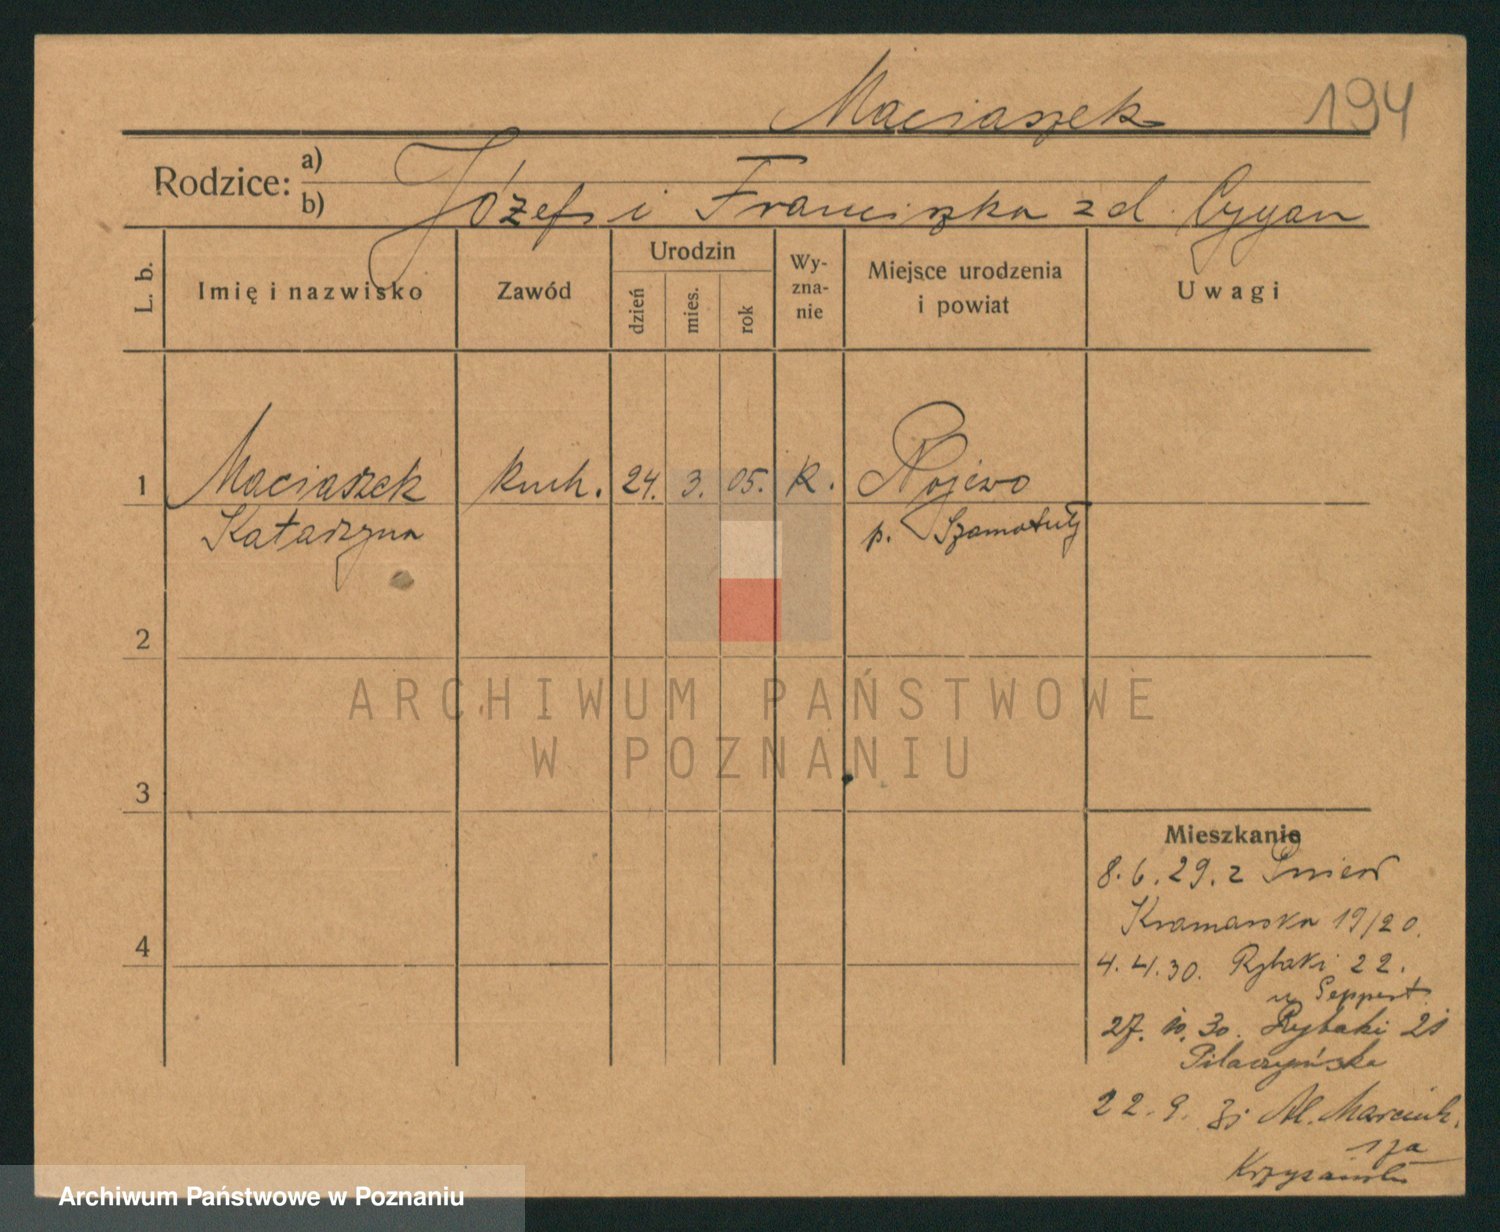 Maciaszek 194
Rodzice: a)
b) Józef i Franciszka z d. Cygan
L. b. Imię i nazwisko Zawód Urodzin dzień mies. rok Wy-zna-nie Miejsce urodzenia i powiat Uwagi
1 Maciaszek kuch. 24. 3. 05. k. Rojewo
Katarzyna p. Szamotuły
2
ARCHIWUM PAŃSTWOWE
W POZNANIU
3
Mieszkanie
8. 6. 29. z Pniew
Kramarska 19/20.
4
4. 4. 30. Rybaki 22.
u Seppert
27. 10. 30. Rybaki 21
22. 9. 31 Al. Marcink.
Archiwum Państwowe w Poznaniu